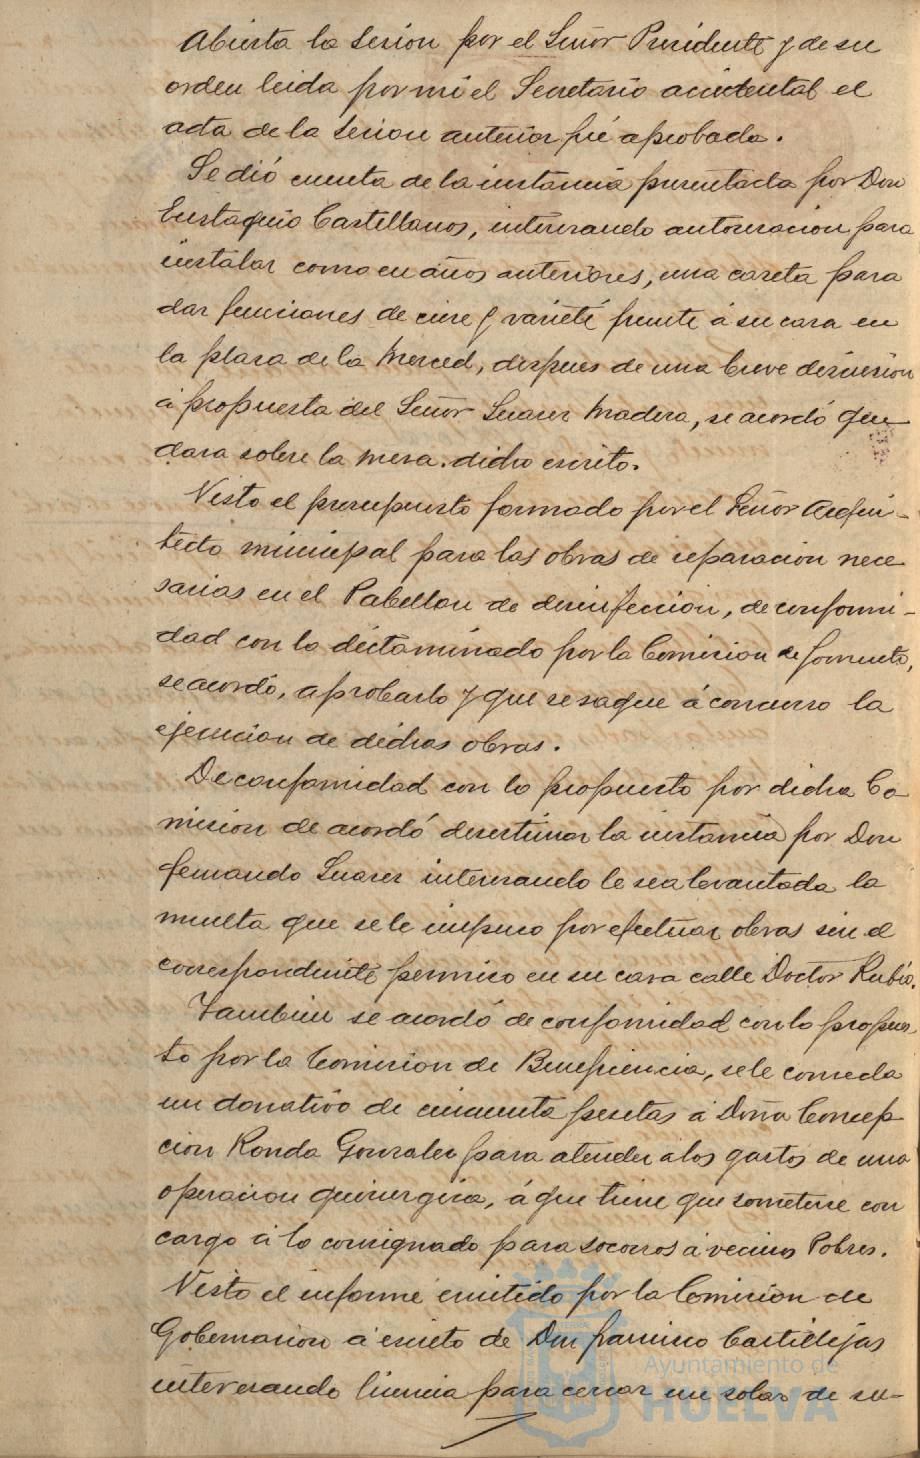 Abierta la sesion por el Señor Presidente y de su
orden leida por mi el Secretario accidental el
acta de la sesion anterior fué aprobada.
Se dió cuenta de la instancia presentada por Don
Eustaquio Castellanos, interesando autorizacion para
instalar como en años anteriores, una caseta para
dar funciones de cine y varieté frente á su casa en
la plaza de la Merced, despues de una breve discusion
á propuesta del Señor Suarez Madera, se acordó que
dara sobre la mesa. dicho escrito.
Visto el presupuesto formado por el Señor Arqui-
tecto municipal para las obras de reparacion nece
sarias en el Pabellon de desinfeccion, de conformi-
dad con lo dictaminado por la Comision de fomento,
se acordó, aprobarlo y que se saque á concurso la
ejecucion de dichas obras.
De conformidad con lo propuesto por dicha Co
mision de acordó desestimar la instancia por Don
fernando Suarez interesando le sea levantada la
multa que se le impuso por efectuar obras sin el
correspondiente permiso en su casa calle Doctor Rubio.
Tambien se acordó de conformidad con lo propues
to por la Comision de Beneficiencia, se le conceda
un donativo de cincuenta pesetas á Doña Concep
cion Ronda Gonzalez para atender a los gastos de una
operacion quirurgica, á que tiene que someterse con
cargo á lo consignado para socorros á vecinos Pobres.
Visto el informe emitido por la Comision de
Gobernacion á escrito de Don francisco Castillejas
interesando licencia para cerrar un solar de su-
Ayuntamiento de
HUELVA